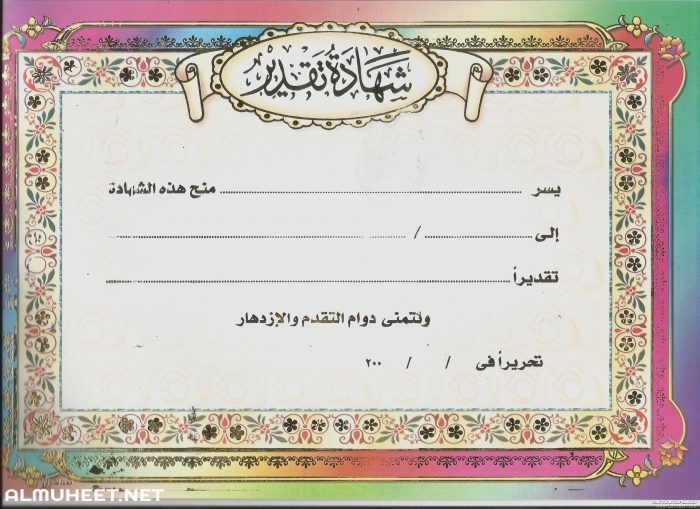 شهادة تقدير
يسر ........................ منح هذه الشهادة
إلى ............ / ........................
تقديراً ........................
ونتمنى دوام التقدم والإزدهار
تحريراً فى / / ٢٠٠
ALMUHEET.NET